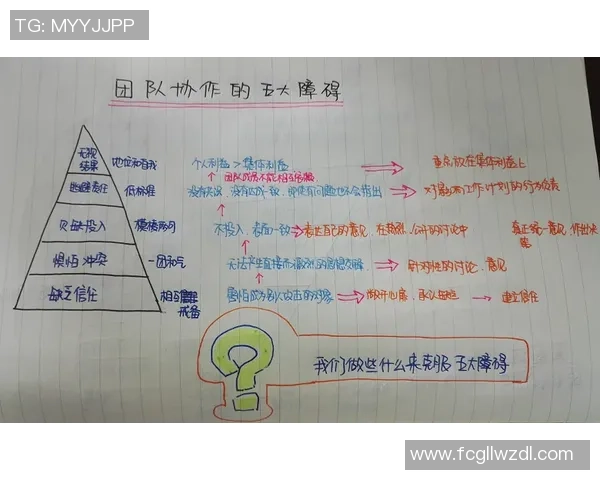 TG: MYYJJPP
团队协作的五大障碍
无视结果 地位和自我 个人利益 > 集体利益 重点放在集体利益上
团队成员不能相互
逃避责任 低标准 没有 没有 即使有问题也不会指出 对 工作计划的
欠缺投入 模棱两可 不投入，表面一致 表达自己的意见，在 公开的讨论中 真正统一意见，作出决策
惧怕冲突 一团和气 无法产生直接而激烈的思想交锋 针对性的讨论、意见
缺乏信任 相互 戒备 害怕成为别人攻击的对象 敞开心扉，承认 建立信任
我们做些什么来克服五大障碍
www.fcgllwzdl.com